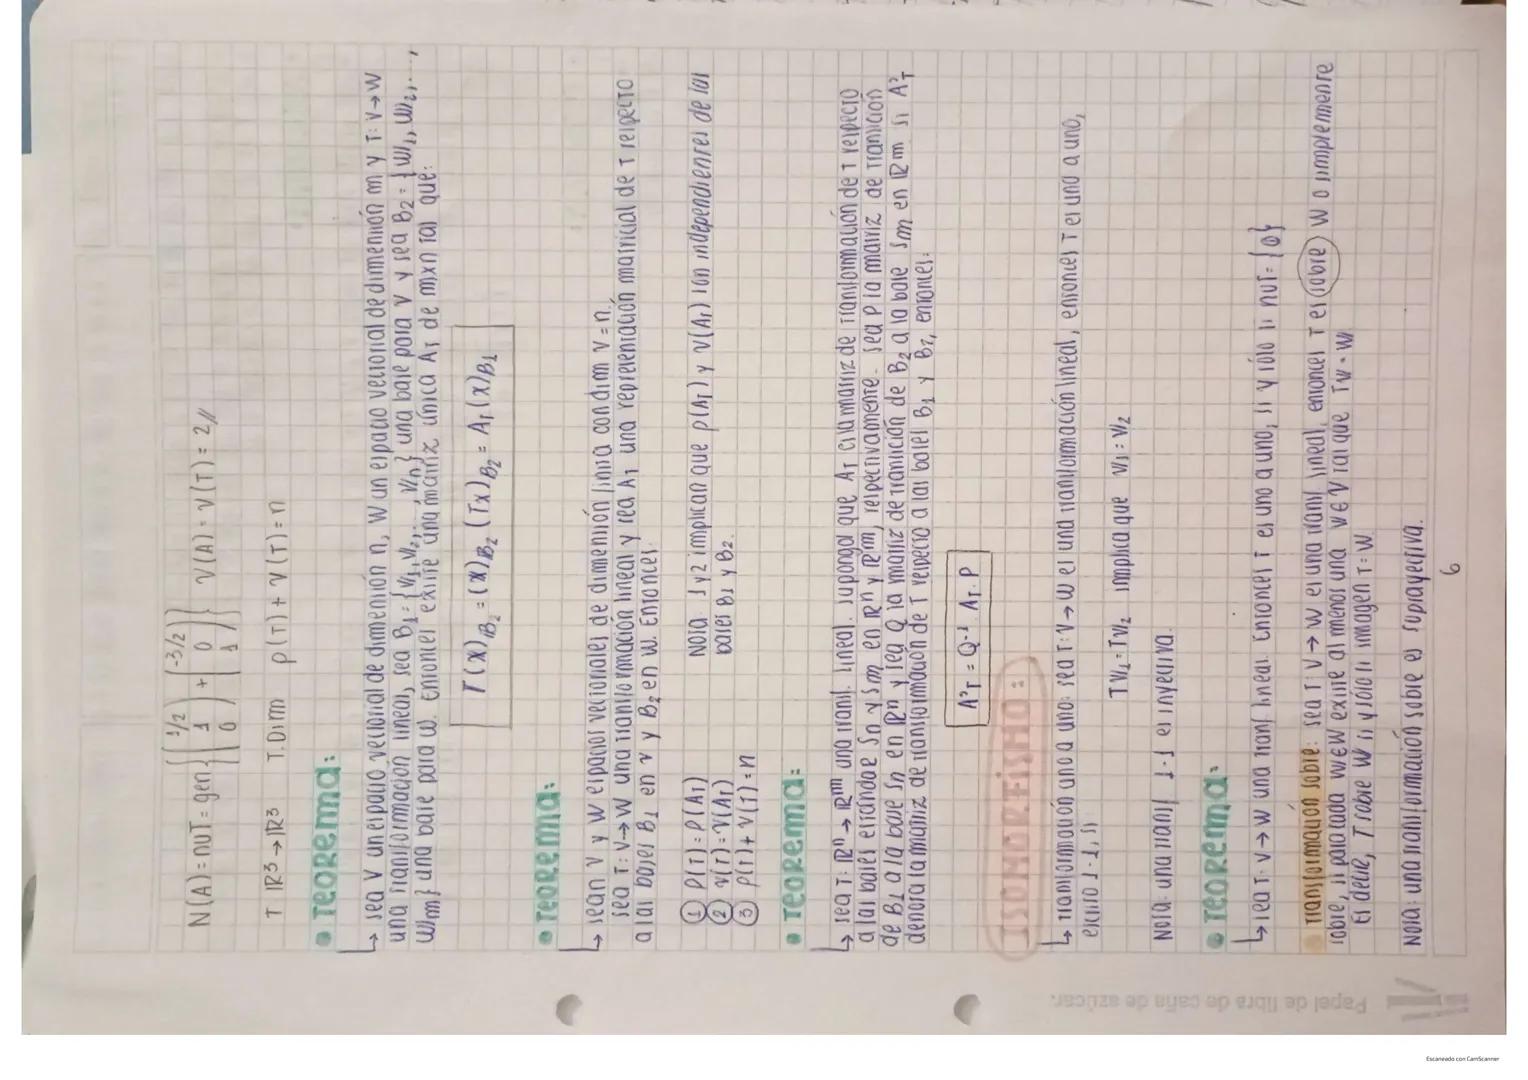 N(A) = nuT = gen { (1/2 1 0) + (-3/2 0 1) } ν(A) = ν(T) = 2 //
T ℝ³ → ℝ³ T. Dim ρ(T) + ν(T) = n
• TEOREMA:
↳ Sea V un espacio vectorial de dimensión n, W un espacio vectorial de dimensión m y T: V → W
una transformación lineal, sea B₁ = {V₁, V₂, ..., Vn} una base para V y sea B₂ = {W₁, W₂, ...,
Wm} una base para W. Entonces existe una matriz única AT de mxn tal que:
T(X)B₂ = (X)B₂ (Tx)B₂ = AT (X)B₁
• TEOREMA:
↳ Sean V y W espacios vectoriales de dimensión finita con dim V = n.
Sea T: V → W una transformación lineal y sea AT una representación matricial de T respecto
a las bases B₁ en V y B₂ en W. Entonces:
① ρ(T) = ρ(AT)
② ν(T) = ν(AT)
③ ρ(T) + ν(T) = n
Nota: 1 y 2 implican que ρ(AT) y ν(AT) son independientes de las
bases B₁ y B₂.
• TEOREMA:
↳ Sea T: ℝⁿ → ℝᵐ una transf. lineal. Supongas que AT es la matriz de transformación de T respecto
a las bases estándar Sn y Sm en ℝⁿ y ℝᵐ, respectivamente. Sea P la matriz de transición
de B₁ a la base Sn en ℝⁿ y sea Q la matriz de transición de B₂ a la base Sm en ℝm si A'T
denota la matriz de transformación de T respecto a las bases B₁ y B₂, entonces:
A'T = Q⁻¹ AT · P
ISOMORFISMO:
↳ Transformación uno a uno: Sea T: V → W es una transformación lineal, entonces T es uno a uno,
escrito 1-1, si
TV₁ = TV₂ implica que V₁ = V₂
Nota: una transf 1-1 es inyectiva.
• TEOREMA:
↳ Sea T: V → W una transf lineal. Entonces T es uno a uno, si y sólo si nuT = {0}
• Transformación sobre: Sea T: V → W es una transf lineal, entonces T es sobre W o simplemente
sobre, si para cada w∈W existe al menos una v∈V tal que Tv = W
Es decir, T sobre W si y sólo si imagen T = W.
Nota: una transformación sobre es suprayectiva.
6
Papel de fibra de caña de azúcar.
Escaneado con CamScanner